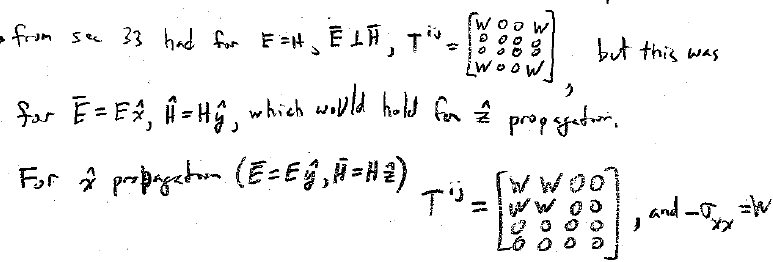 from sec 33 had for E=H, Ē⊥H̄, T^{ij} = [W 0 0 W; 0 0 0 0; 0 0 0 0; W 0 0 W], but this was
for Ē = E x̂, H̄ = H ŷ, which would hold for ẑ propagation.
For x̂ propagation (Ē = E ŷ, H̄ = H ẑ) T^{ij} = [W W 0 0; W W 0 0; 0 0 0 0; 0 0 0 0], and -σ_{xx} = W